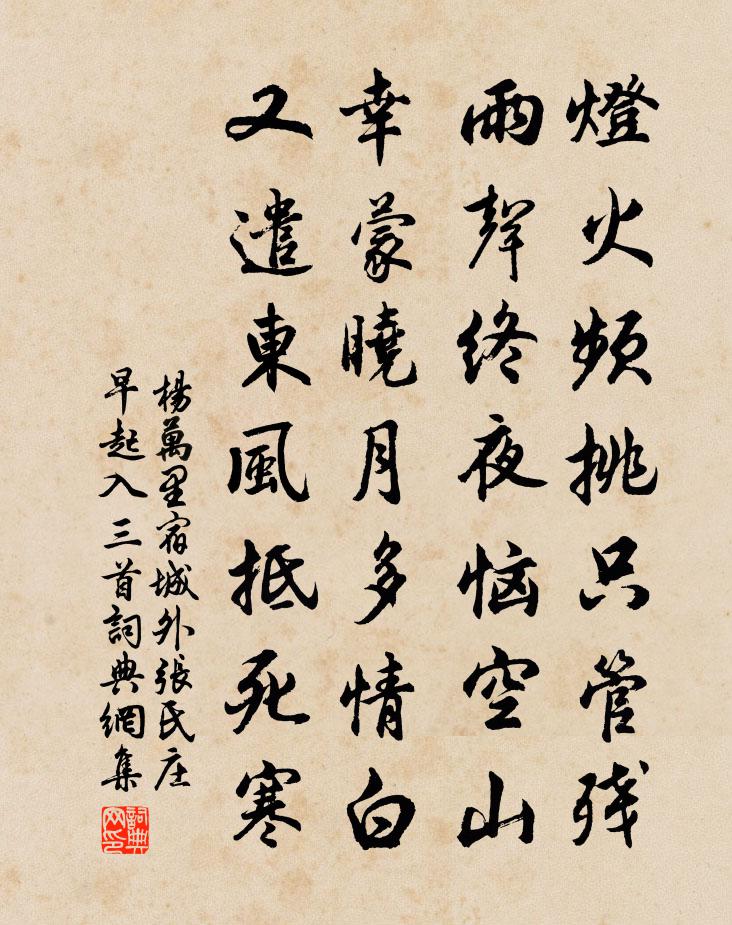 燈火頻挑只管残
雨聲终夜恼空山
幸蒙曉月多情白
又遣東風抵死寒
楊萬里宿城外張氏庄
早起入三首詞典網集
詞典网印